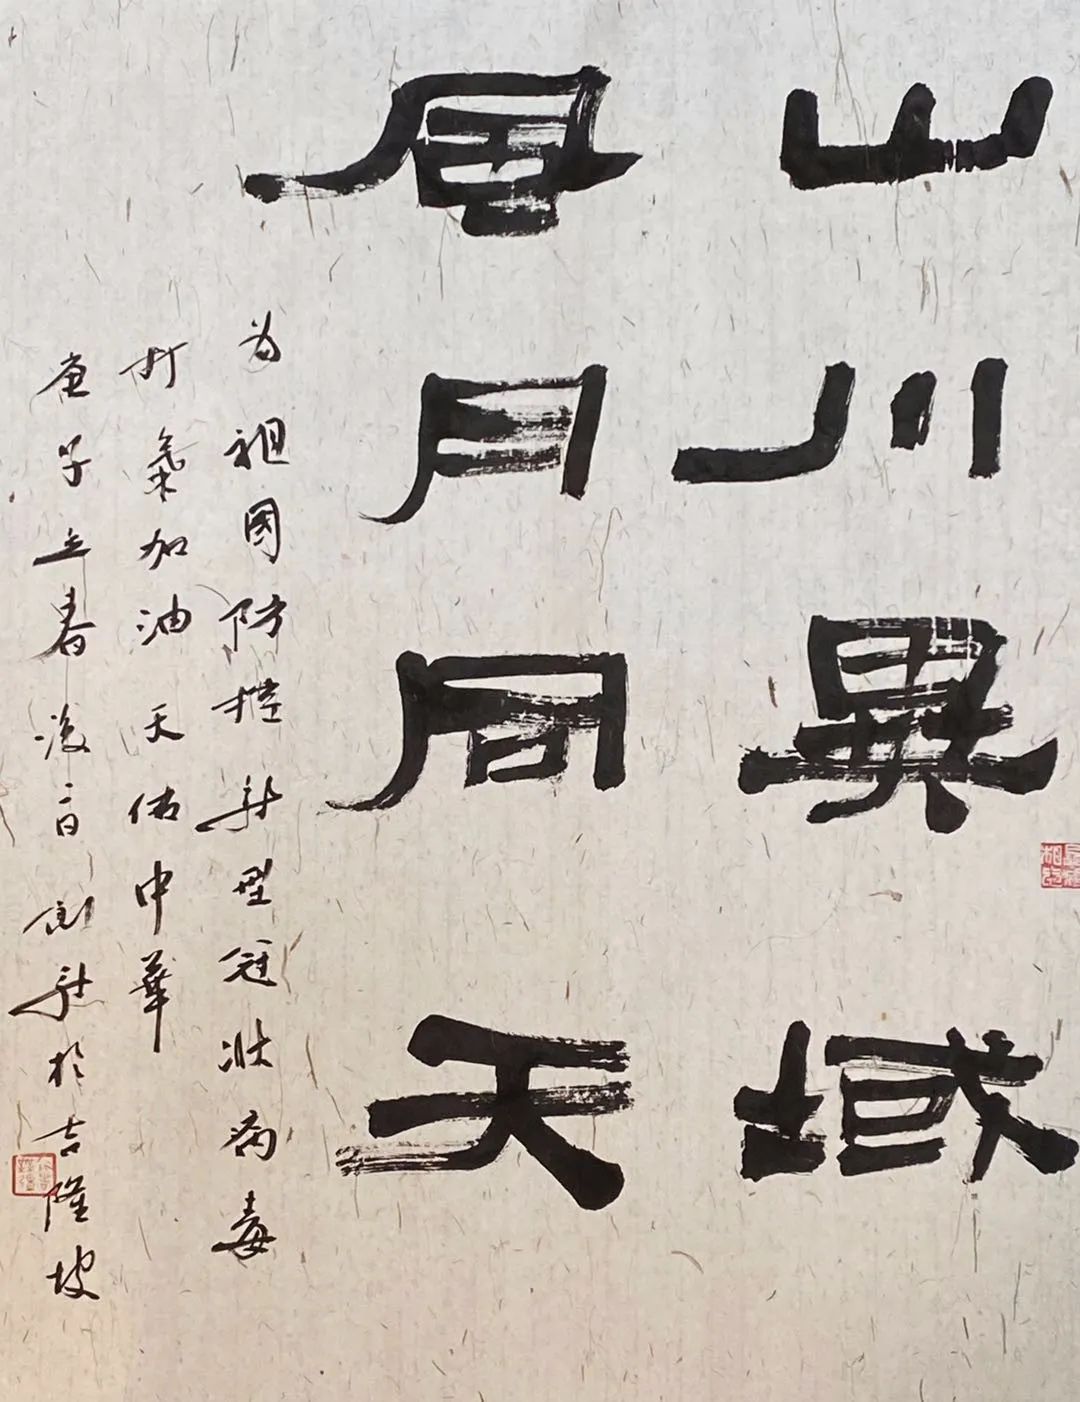 山川異域
風月同天
为祖国防控新型冠状病毒
打氣加油天佑中華
庚子立春後一日 於吉隆坡